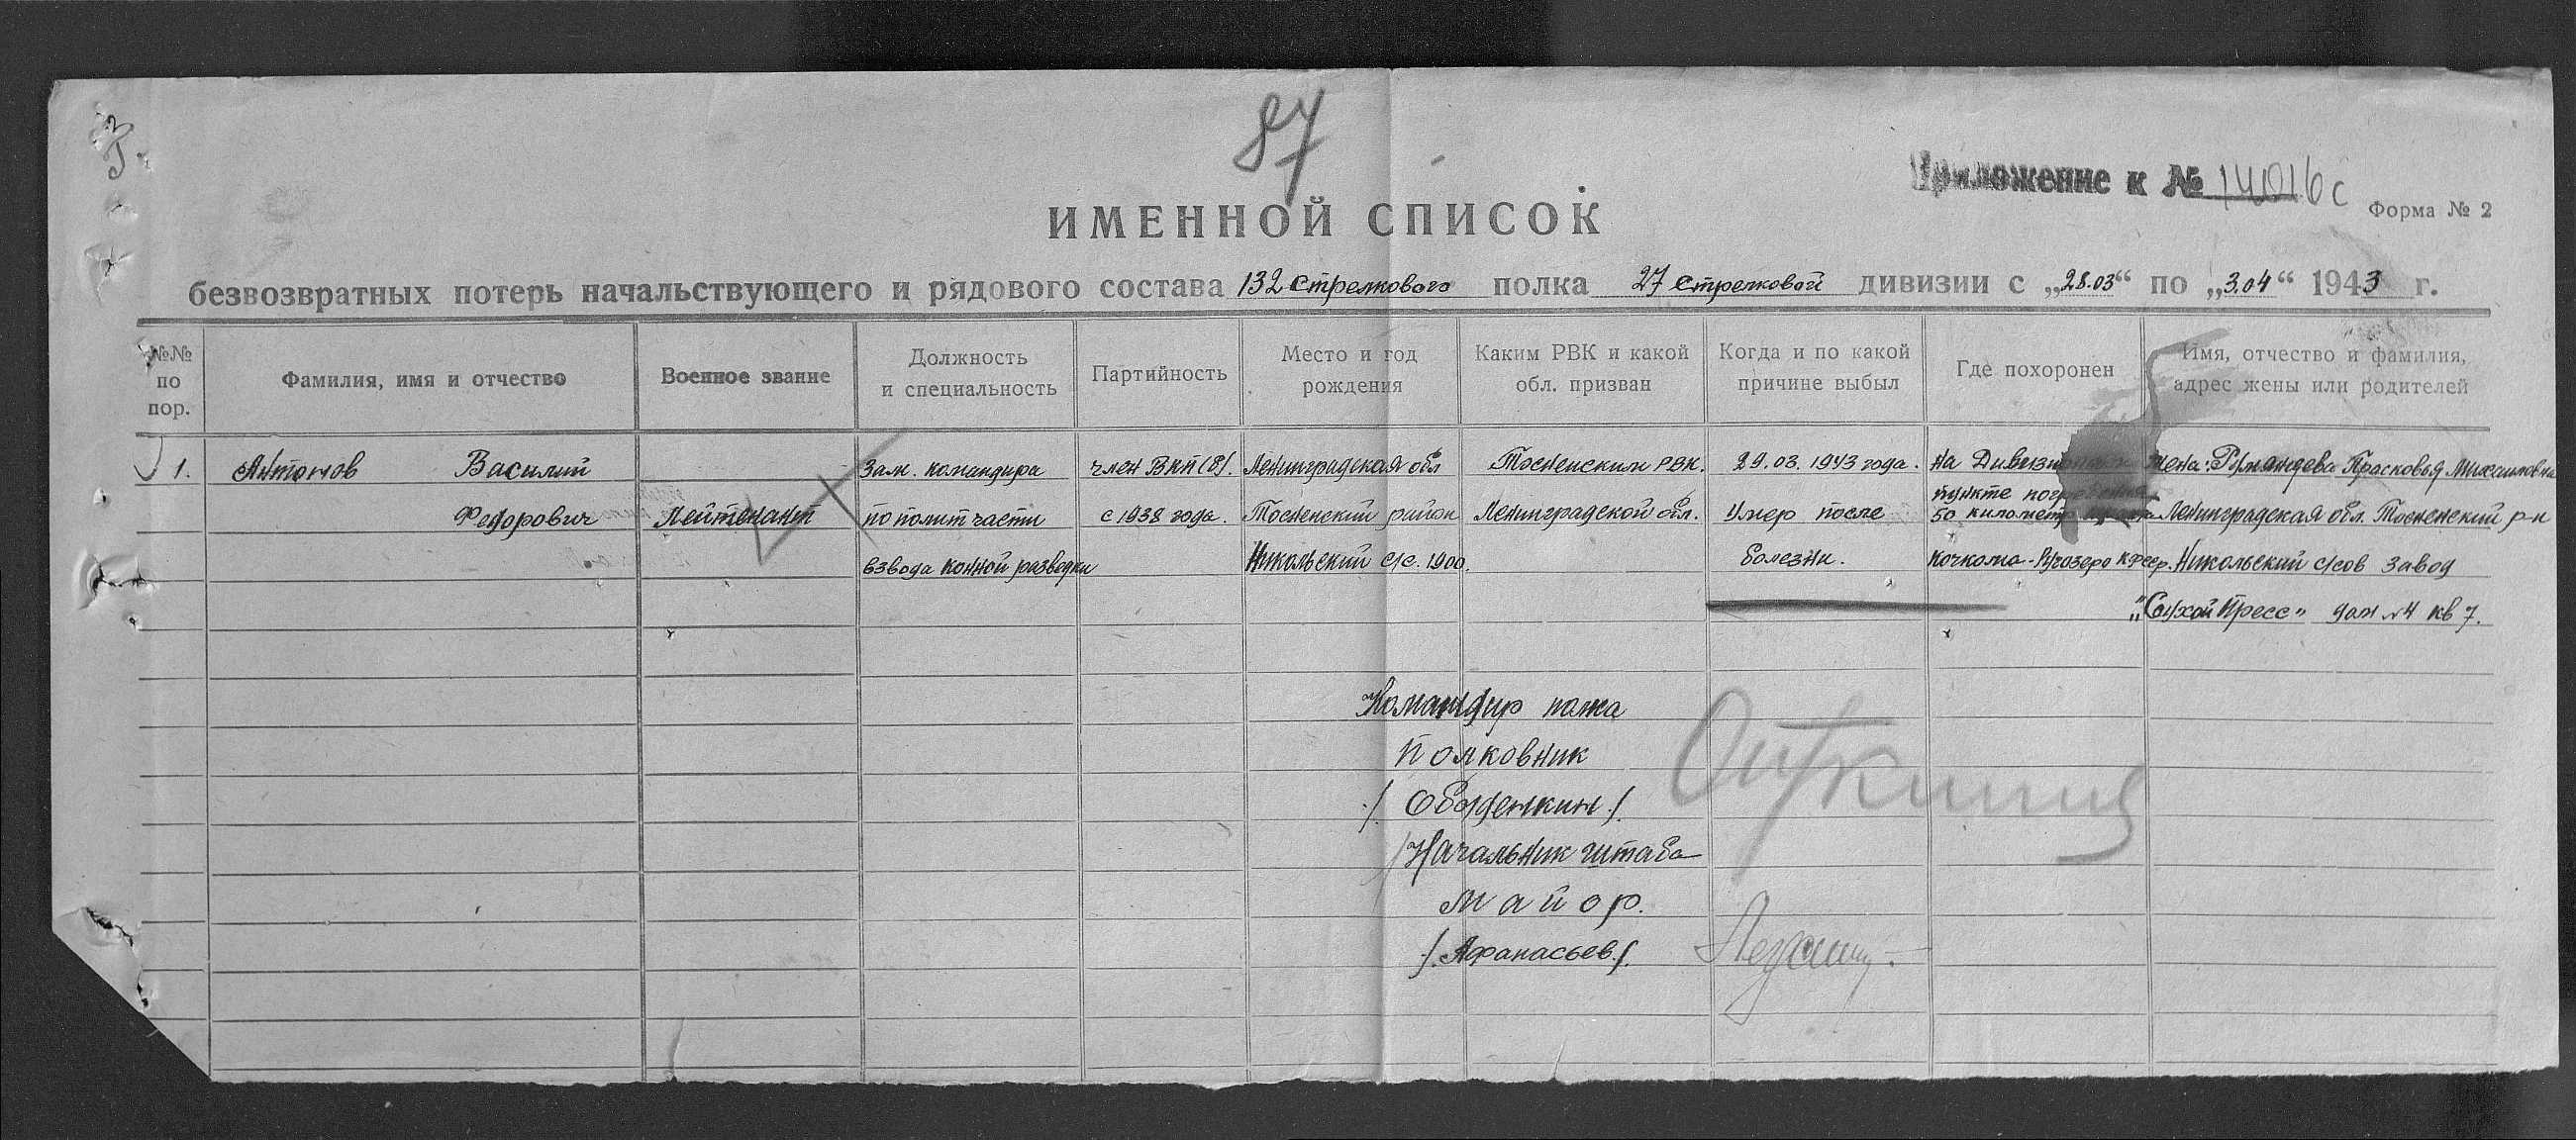 87
Приложение к № 14016с
Форма № 2
ИМЕННОЙ СПИСОК
безвозвратных потерь начальствующего и рядового состава 132 стрелкового полка 27 стрелковой дивизии с „28.03“ по „3.04“ 1943 г.
№№ по пор.
Фамилия, имя и отчество
Военное звание
Должность и специальность
Партийность
Место и год рождения
Каким РВК и какой обл. призван
Когда и по какой причине выбыл
Где похоронен
Имя, отчество и фамилия, адрес жены или родителей
1.
Антонов Василий
Федорович
Лейтенант
Зам. командира
по политчасти
взвода конной разведки
член ВКП(б).
с 1938 года.
Ленинградская обл
Тосненский район
Никольский с/с. 1900.
Тосненским РВК.
Ленинградской обл.
29.03.1943 года.
Умер после
болезни.
На
пункте
50 километр
Кочкома-Ругозеро КФССР.
Жена: Румянцева Прасковья Михайловна
Ленинградская обл. Тосненский р-н
Никольский с/сов завод
„Сухой Пресс" дом №4 кв 7.
Командир полка
Полковник
/. Обыденкин /.
Начальник штаба
майор.
/. Афанасьев. /.